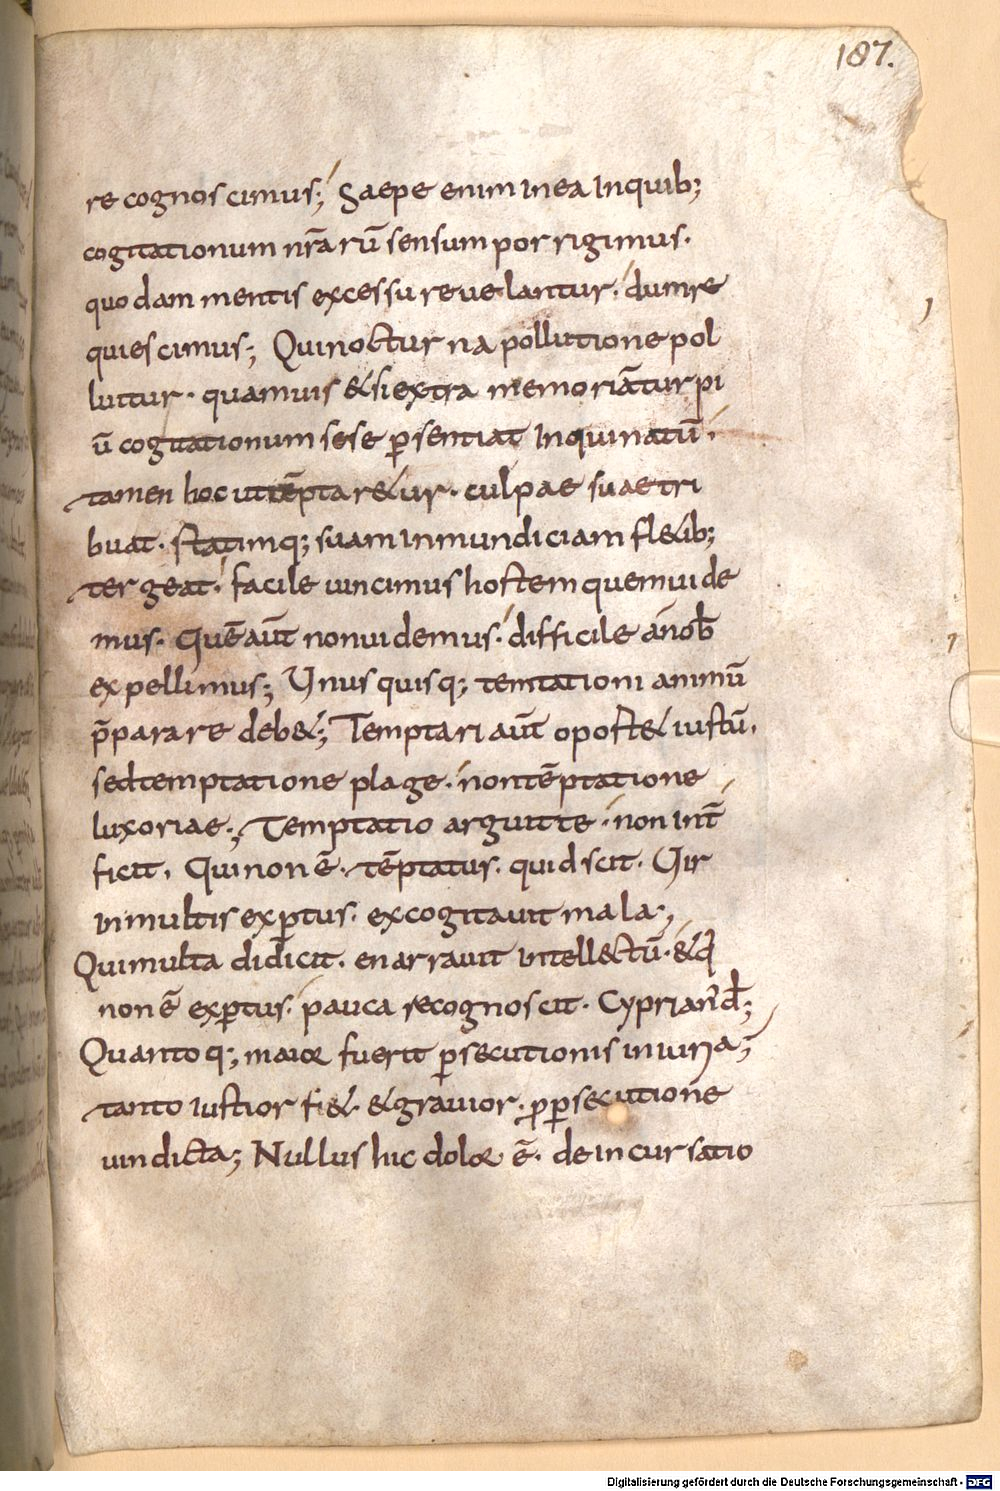 187.
re cognos cimus; Saepe enim in ea in quib;
cogitationum nr̄arū sensum porrigimus.
quodam mentis excessu reuelantur. dum re
quiescimus; Qui nocturna pollutione pol
luitur. quamuis & si extra memoriā turpi
ū cogitationum sese ꝑsentiat inquinatū.
tamen hoc ut tēptar&ur. culpae suae tri
buat. statimq; suam inmundiciam fl&ib;
tergeat. facile uincimus hostem quem uide
mus. Quē aūt non uidemus. difficile a nob̄
expellimus; Unus quisq; temtationi animū
p̄parare deb&; Temptari aūt oport& iustū.
sed temptatione plage. non tēptatione
luxoriae; Temptatio arguit te. non int̄
ficit. Qui non ē. tēptatus. quid scit. Uir
in multis exꝑtus. excogitauit mala;
Qui multa didicit. enarrauit intellectū. & q̄
non ē exꝑtus. pauca recognoscit. Cyprian' d̄;
Quantoq; maior fuerit ꝑsecutionis iniuria;
tanto iustior fi&. & grauior. ꝓ ꝑsecutione
uindicta; Nullus hic dolor ē. de incursatio
Digitalisierung gefördert durch die Deutsche Forschungsgemeinschaft - DFG